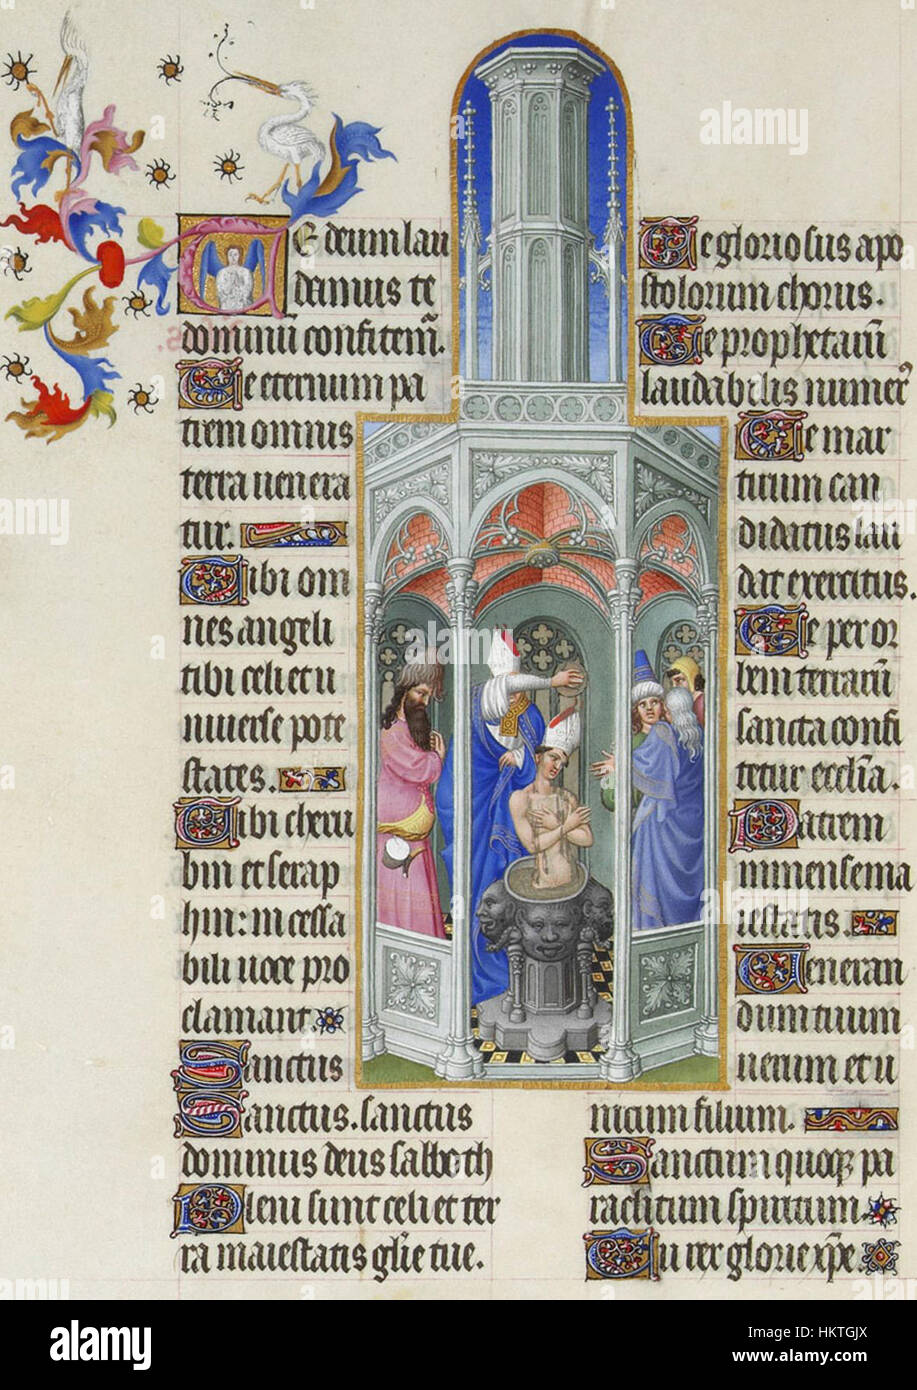 Te deum lau
damus te
dominū confitem̄.
Te eternum pa
trem omnis
terra uenera
tur.
Tibi om
nes angeli
tibi celi et u
niuerse pote
states.
Tibi cheru
bin et serap
hin: incessa
bili uoce pro
clamant.
Sanctus
Sanctus. sanctus
dominus deus sabaoth
Pleni sunt celi et ter
ra maiestatis glīe tue.
Te gloriosus apo
stolorum chorus.
Te prophetarū
laudabilis numer9
Te mar
tirum can
didatus lau
dat exercitus.
Te per or
bem terrarū
sancta confi
tetur ecclīa.
Patrem
immense ma
iestatis.
Ueneran
dum tuum
uerum et u
nicum filium.
Sanctum quoqꝫ pa
raclitum spiritum.
Tu rex glorie xp̄e.
alamy
alamy
Image ID: HKTGJX
www.alamy.com